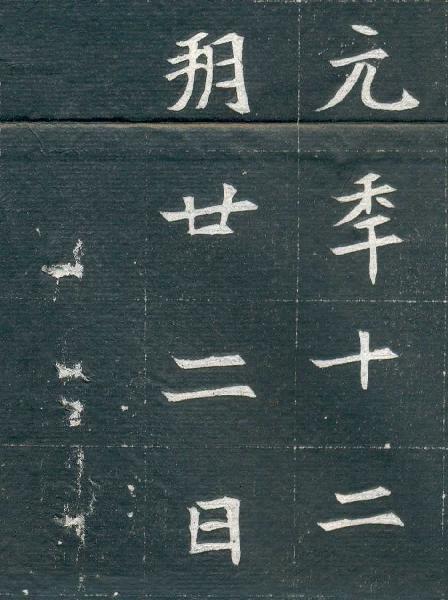 元秊十二
廿二日